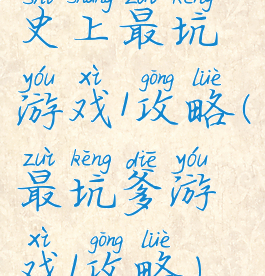 shǐ shàng zuì kēng
史上最坑
yóu xì gōng lüè
游戏/攻略(
zuì kēng diē yóu
最坑爹游
xì gōng lüè
戏/攻略)